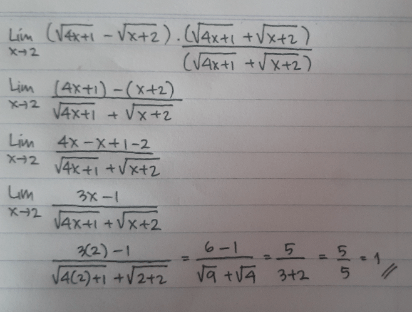 Lim x→2 (√4x+1 − √x+2) . (√4x+1 + √x+2) / (√4x+1 + √x+2)
Lim x→2 (4x+1) − (x+2) / √4x+1 + √x+2
Lim x→2 4x−x+1−2 / √4x+1 + √x+2
Lim x→2 3x−1 / √4x+1 + √x+2
3(2)−1 / √4(2)+1 + √2+2 = 6−1 / √9 + √4 = 5 / 3+2 = 5/5 = 1 //